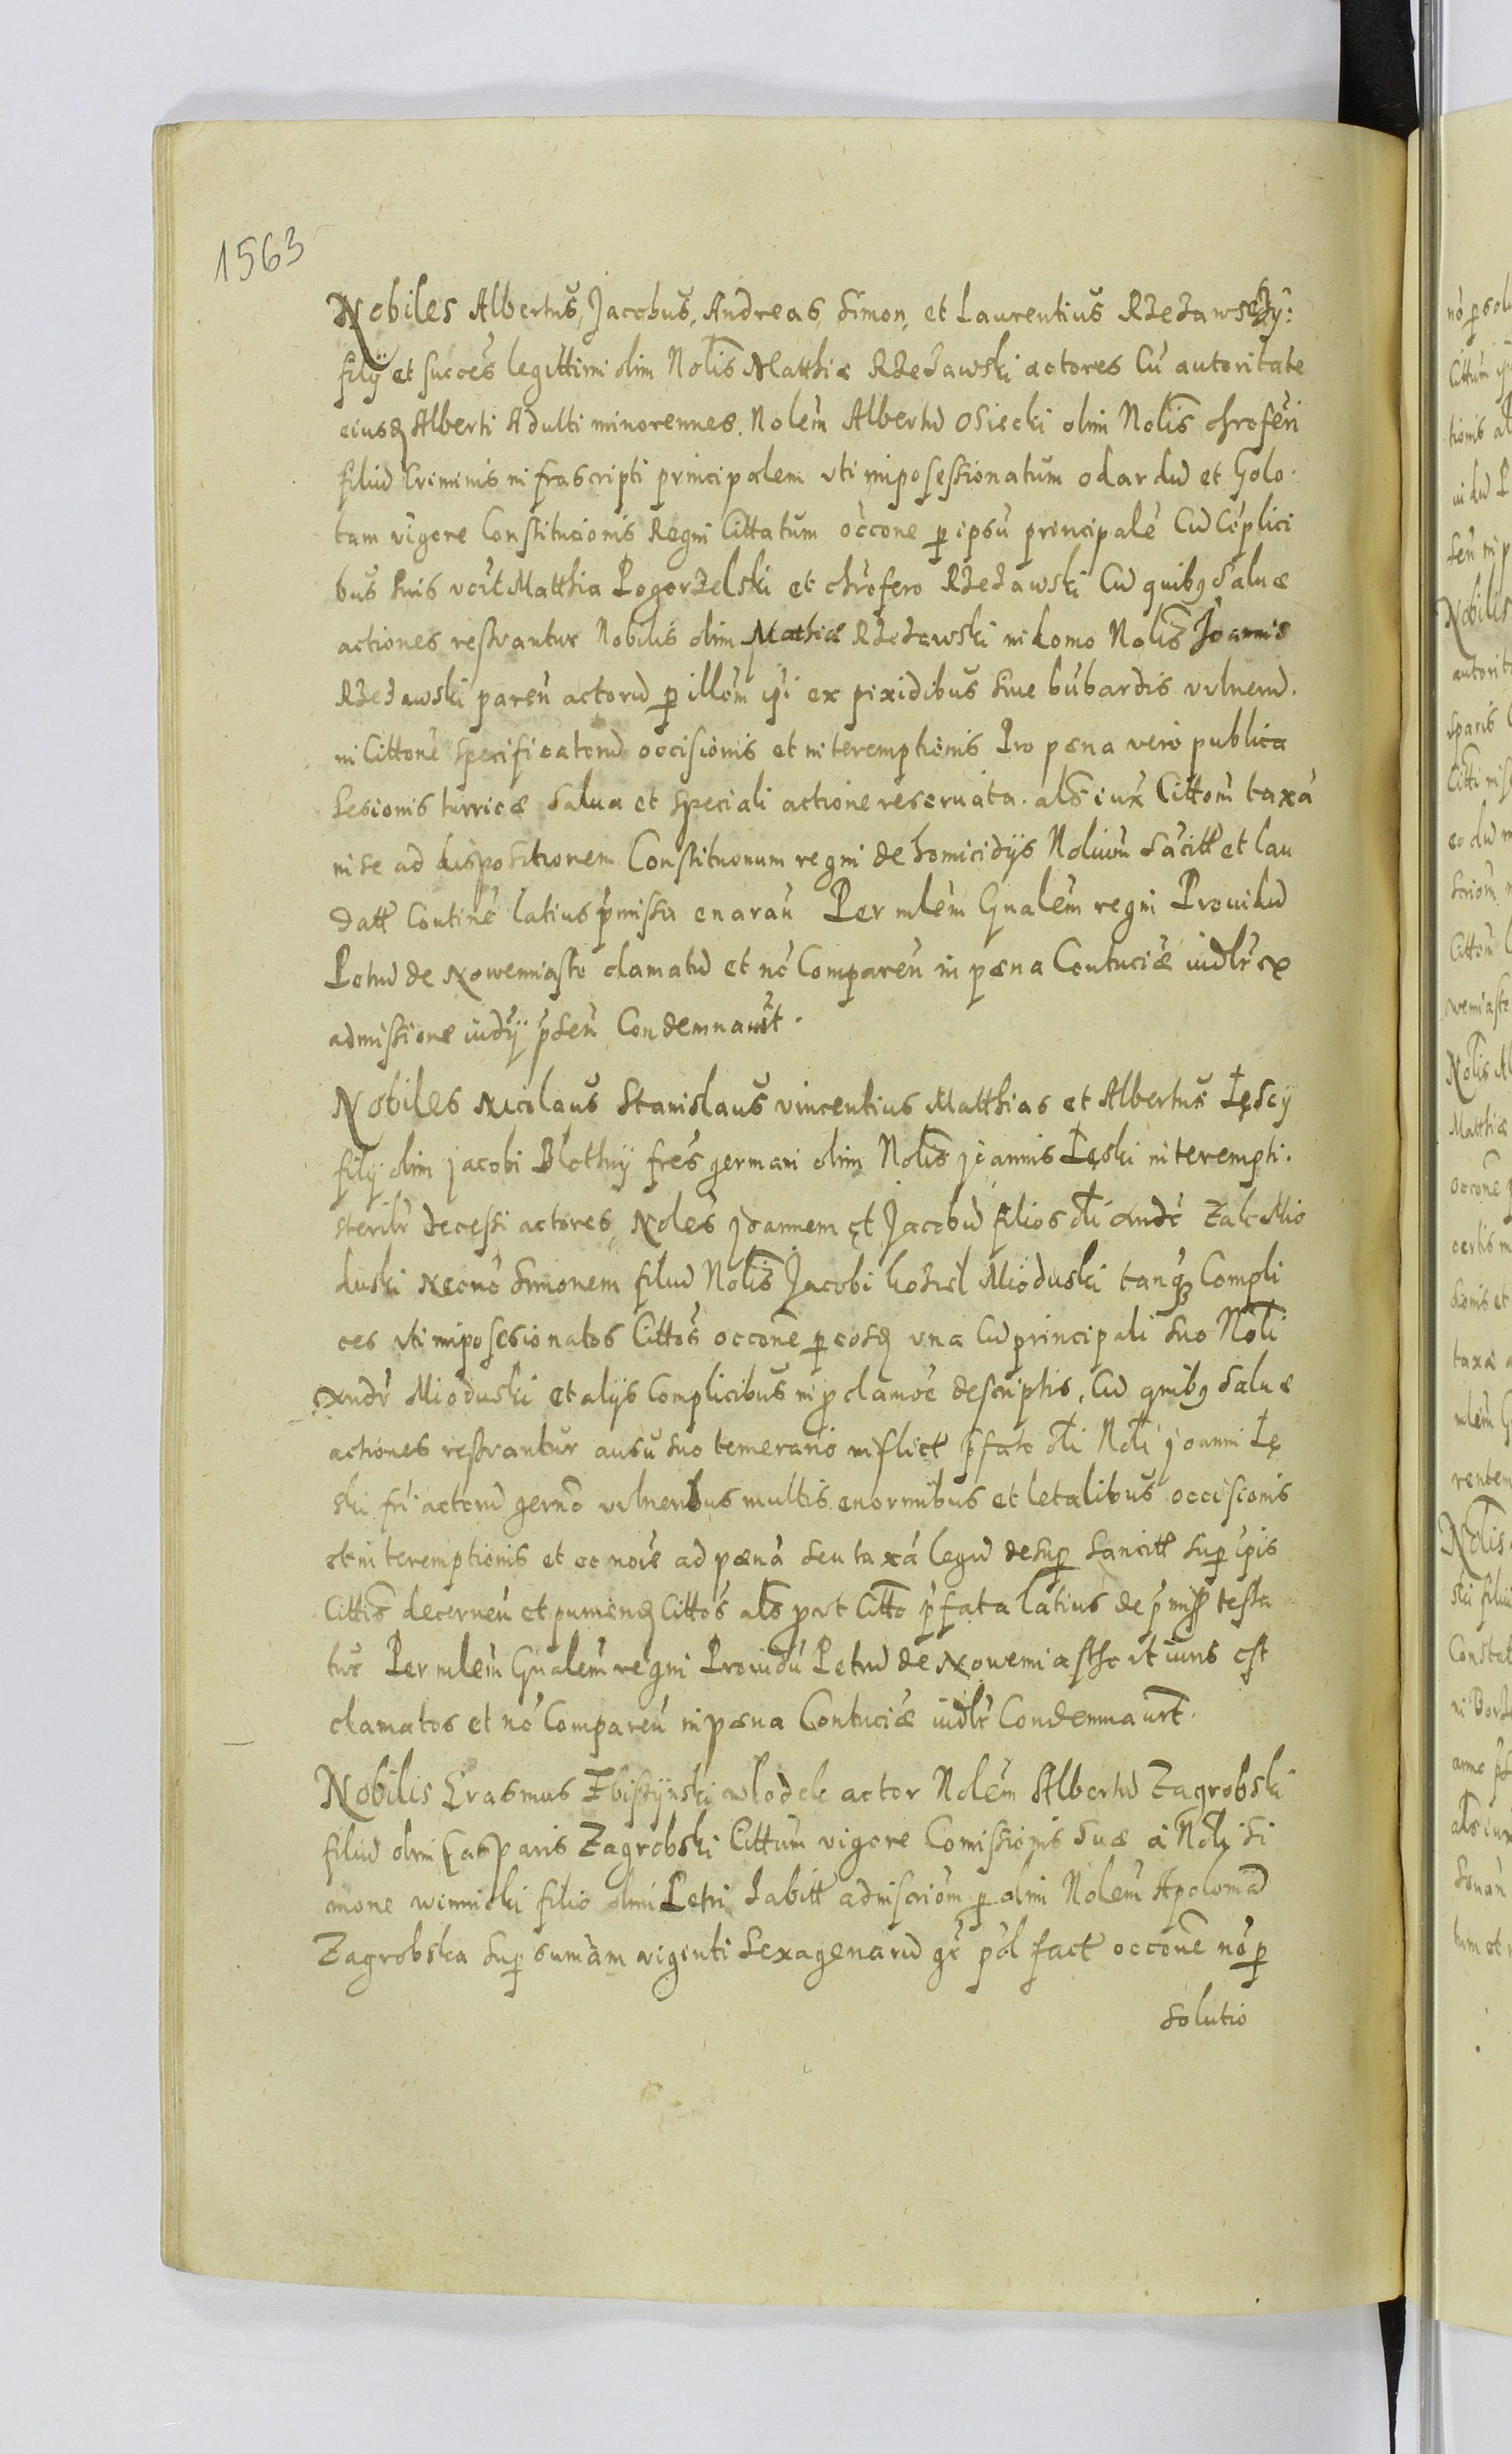 1563
Nobiles Albertus, Jacobus, Andreas, Simon, et Laurentius Rzezawsczy:
filÿ et succes legittimi olim Nolis Matthiæ Rzezawski actores Cu autoritate
eiusq Alberti Adulti minorennes. Nolem Albertu Osiecki olim Nolis chroferi
filiu Criminis infrascripti principalem vti imposessionatum odardu et Golo
tam vigore Constitucionis Regni Cittatum occone p ipsu principale Cu Coplici
bus suis vcit Matthia Pogorzelski et chrofero Rzezawski Cu quibq Saluæ
actiones resvantur Nobilis olim Mathiæ Rzezawski in domo Nolis Joannis
Rzezawski paren actoru p illom ipi ex pixidibus siue bubardis vulneru.
in Cittone specificatoru occisionis et interemptionis Pro pæna vero publica
Sesionis turricæ Salua et speciali actione reseruata. als iux Cittom taxa
in se ad dispositionem Constituonum regni de homicidÿs Noluim Sacitt et lau
datt Contine latius pmissa enarau Per mlem Gnalem regni Prouidu
Petru de Nowemiasto clamatu et no Comparen in pæna Contuciæ iudlr ex
admissione iudÿ pseu Condemnauit.
Nobiles Nicolaus Stanislaus vincentius Matthias et Albertus Łęscÿ
filÿ olim jacobi Blothnÿ fres germani olim Nolis joannis Łęski interempti.
sterilr decessi actores, Noles joannem et Jacobu filios oli Andr Zale Mio
duski Necno Simonem filiu Nolis Jacobi koziel Mioduski tanq Compli
ces vti imposesionatos Cittos occone p eosq vna Cu principali suo Noli
Andr Mioduski et alÿs Complicibus in p clamoe descriptis, Cu quibq Saluæ
actiones resvantur ausu suo temerario inflict pfato oli Noli joanni Łę
ski fri actoru germo vulneribus multis enormibus et letalibus occisionis
et interemptionis et eo noie ad pæna seu taxa legu desup Sancitt sup ipis
Cittis decerneu et puniendq Cittos als prt Citto pfata latius de pmiss testa
tur Per mlem Gnalem regni Prouidu Petru de Nowemiastho vt iuris est
clamatos et no Comparen in pæna Contuciæ iudlr Condemnaurt.
Nobilis Erasmus Zbiszÿnski wlodek actor Nolem Albertu Zagrobski
filiu olim Casparis Zagrobski Cittum vigore Comissionis Suæ a Noli Si
mone winnicki filio olim Petri habitt ad inscriom p olim Nolem Apolonia
Zagrobska sup sumam viginti Sexagenaru gr pol fact occone no p
solutio